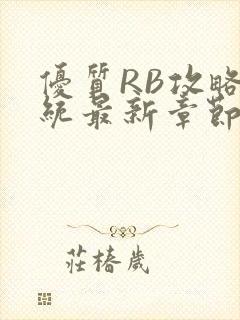 優質RB攻略
統最新章節
莊椿歲